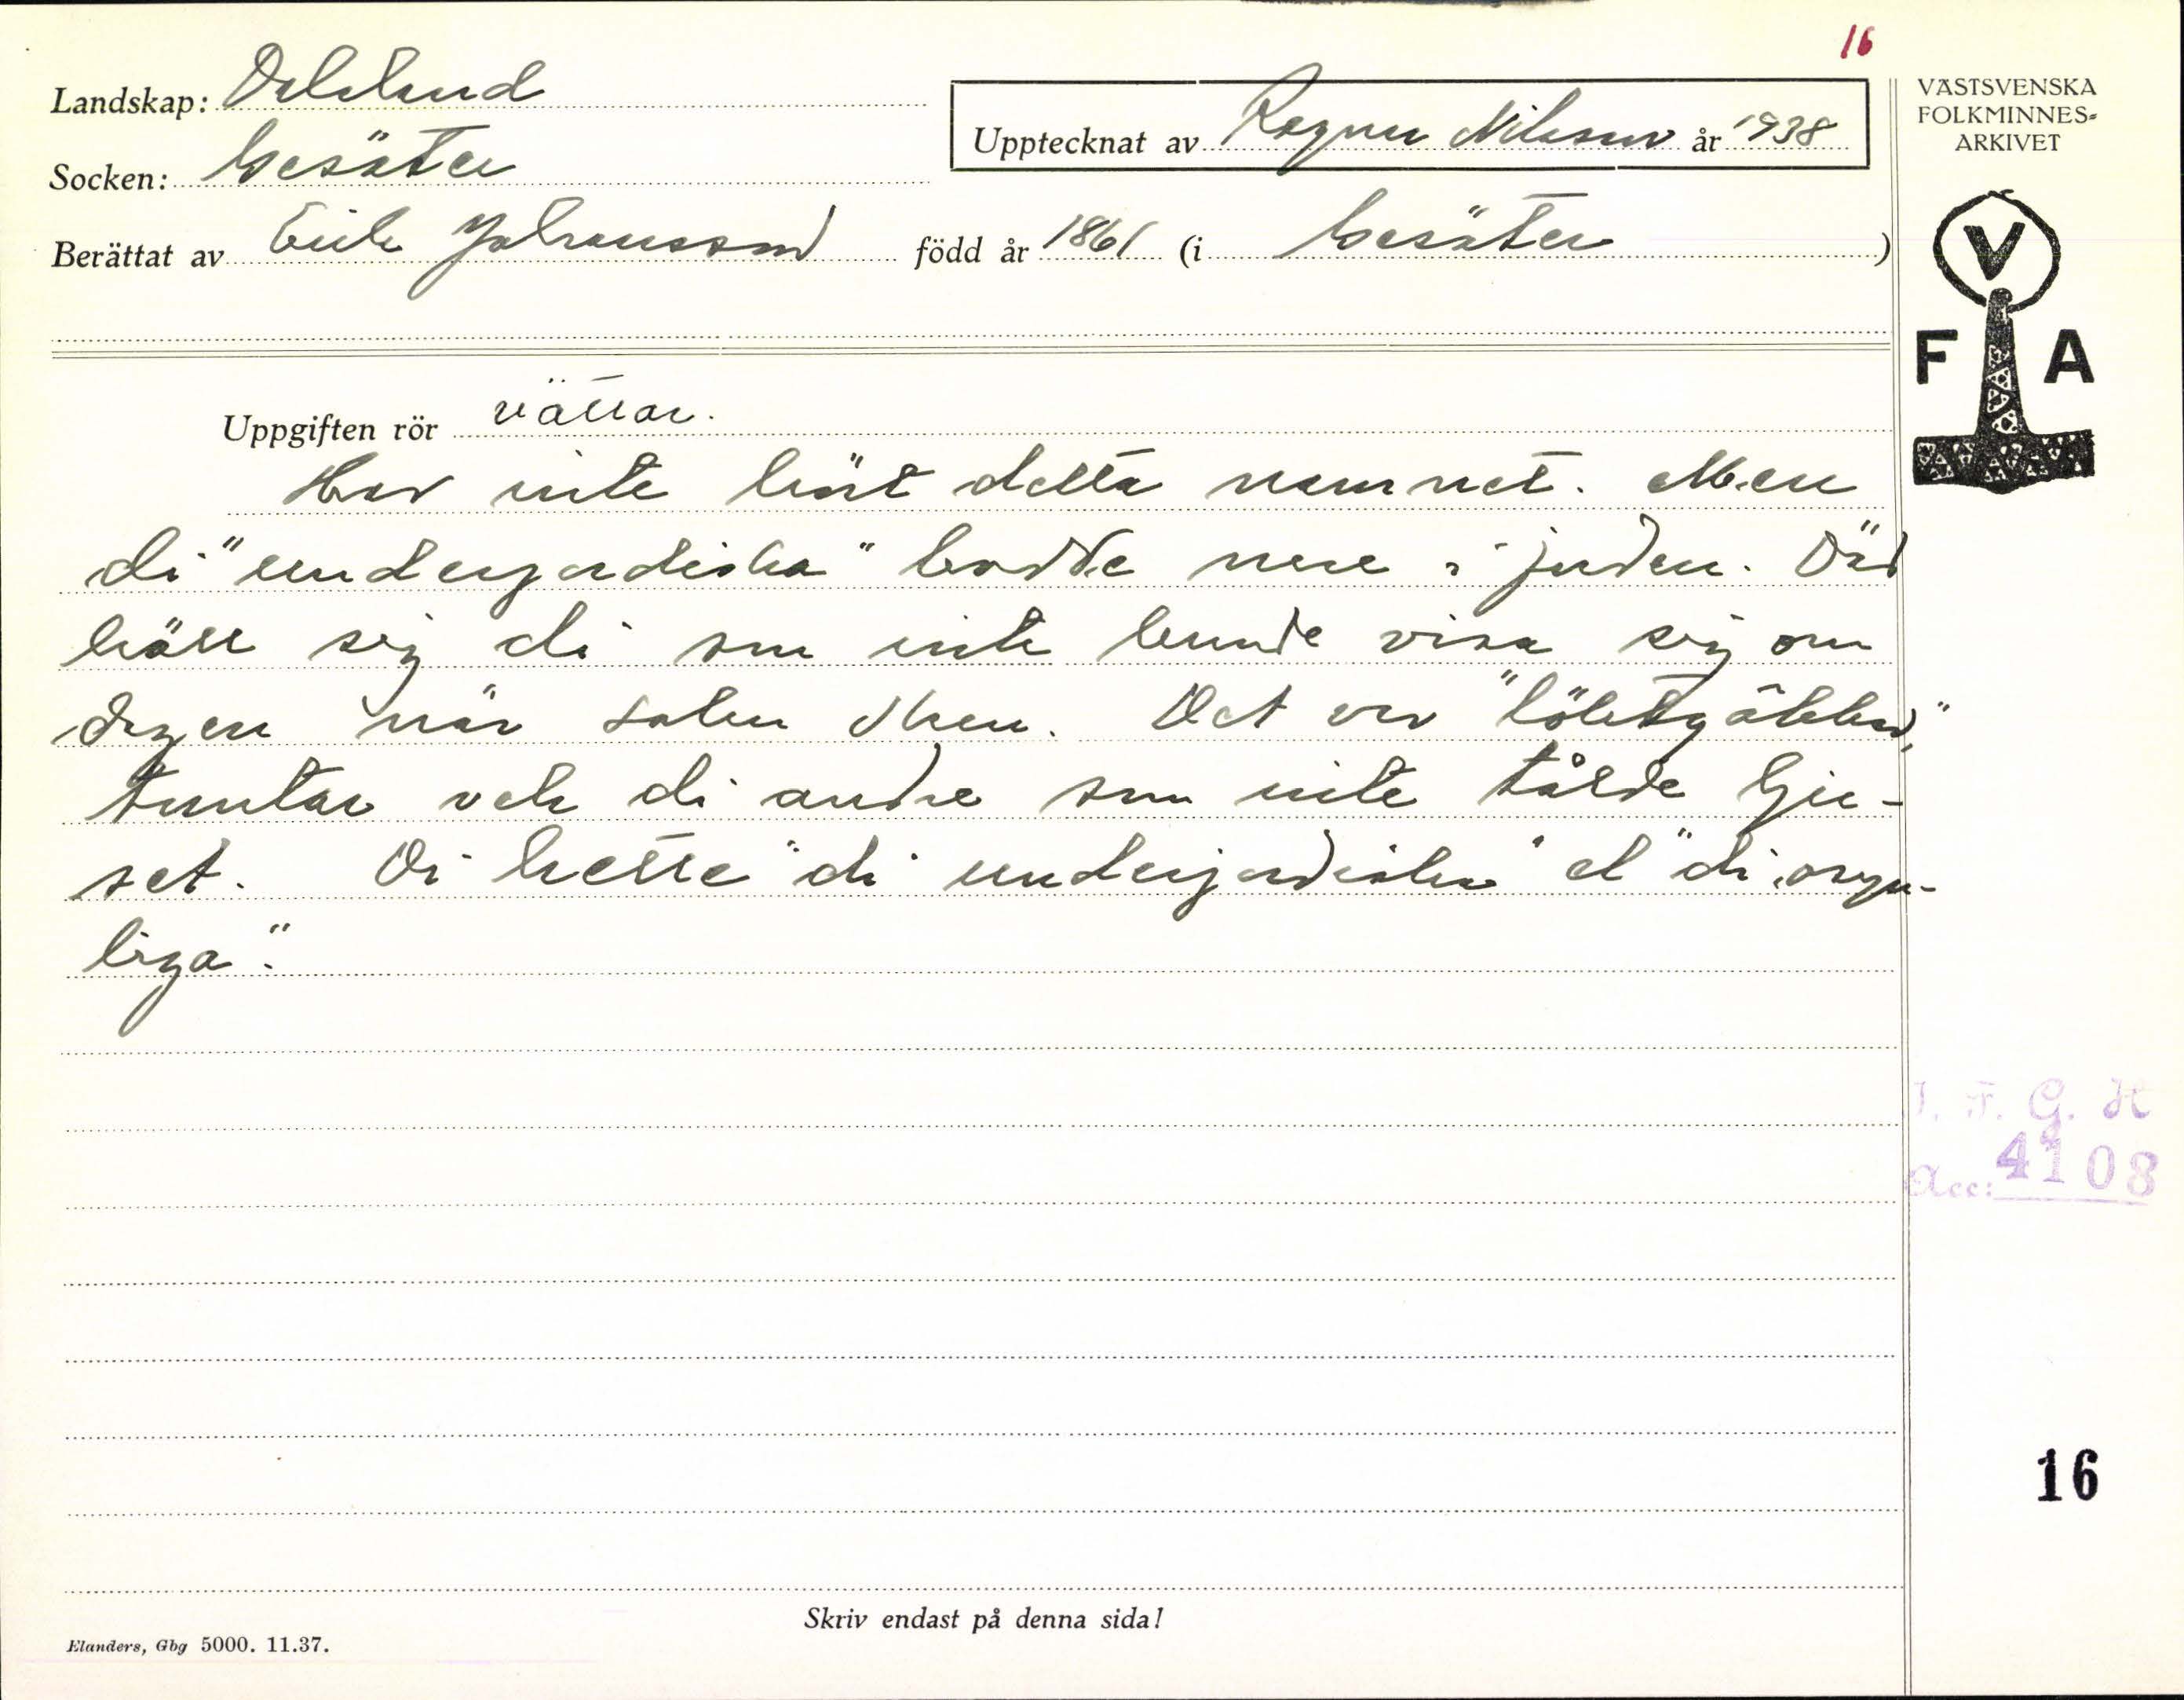 16
Landskap: Dalsland
Socken: Gesäter
Upptecknat av Ragnar Nilsson år 1938
Berättat av Erik Johansson född år 1861 (i Gesäter)
VÄSTSVENSKA
FOLKMINNES=
ARKIVET
V
F A
Uppgiften rör vättar.
Har inte hört detta namnet. Men
di "underjordiska" bodde nere i jorden. Där
höll sig di som inte kunde visa sig om
dagen när solen sken. Det var
tomtar och di andre som inte tålde lju-
set. Di hette "di underjordiska" el "di osyn-
liga".
I. F. G. H
Acc: 4108
16
Skriv endast på denna sida!
Elanders, Gbg 5000. 11.37.